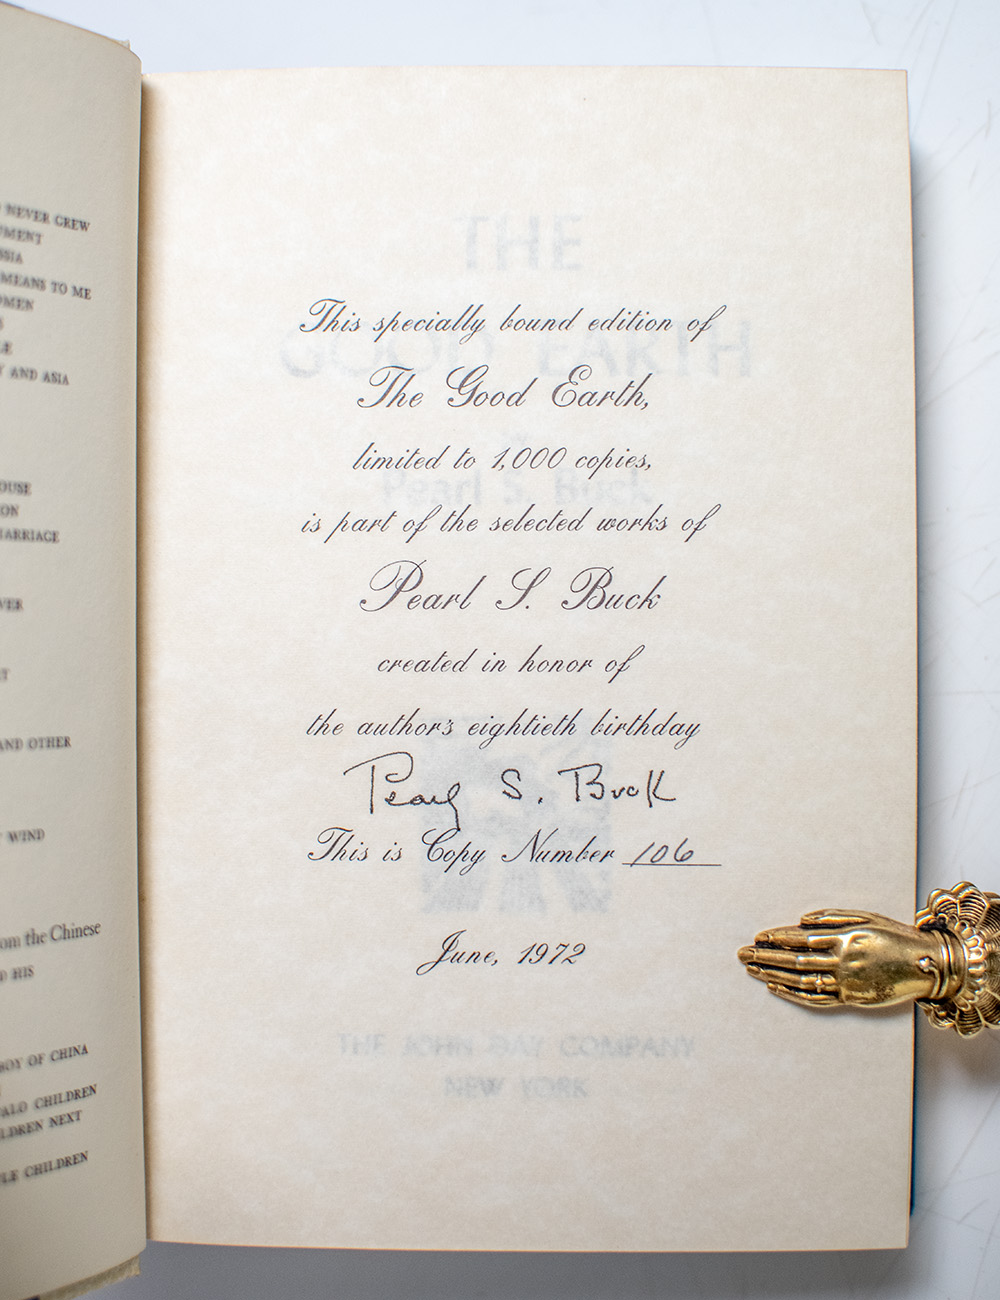 NEVER CREW
MEANS TO ME
AND ASIA
AND OTHER
WIND
the Chinese
HIS
OF CHINA
CHILDREN
NEXT
CHILDREN
THE
GOOD EARTH
This specially bound edition of
The Good Earth,
limited to 1,000 copies,
Pearl S. Buck
is part of the selected works of
Pearl S. Buck
created in honor of
the author's eightieth birthday
Pearl S. Buck
This is Copy Number 106
June, 1972
THE JOHN DAY COMPANY
NEW YORK